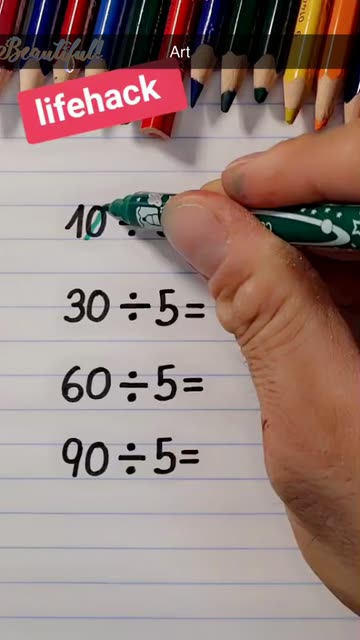 Beautiful!
Art
lifehack
10 ÷
30÷5=
60÷5=
90÷5=